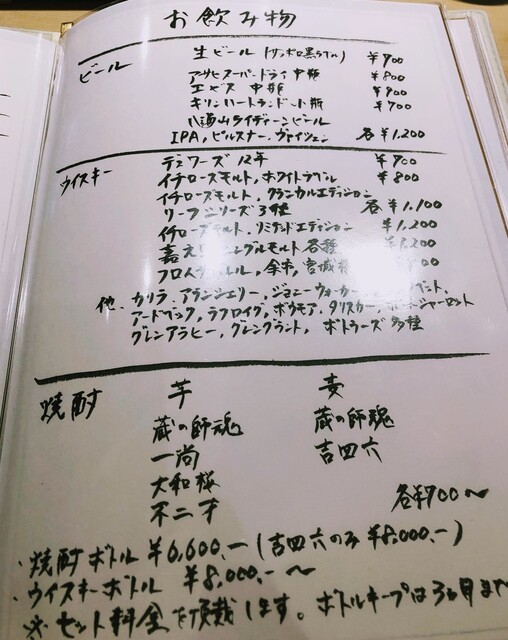 お飲み物
ビール
生ビール (サッポロ黒ラベル) ¥700
アサヒスーパードライ 中瓶 ¥800
エビス 中瓶 ¥900
キリンハートランド 小瓶 ¥700
八海山ライディーンビール
IPA, ピルスナー, ヴァイツェン 各¥1,200
ウイスキー
デュワーズ 12年 ¥700
イチローズモルト, ホワイトラベル ¥800
イチローズモルト, クラシカルエディション
リーフシリーズ3種 各¥1,100
イチローズモルト, リミテッドエディション ¥1,200
嘉之 シングルモルト各種 ¥1,200
フロム ザ バレル, 余市, 宮城
他. カリラ, アランシェリー, ジョニーウォーカー
アードベッグ, ラフロイグ, ボウモア, タリスカー, ポートシャーロット
グレンアラヒー, グレングラント, ボトラーズ多種
焼酎
芋
蔵の師魂
一尚
大和桜
不二才
麦
蔵の師魂
吉四六
各¥700〜
・焼酎ボトル ¥6,600.- (吉四六のみ ¥8,000.-)
・ウイスキーボトル ¥8,000.-〜
※ セット料金を頂戴します。ボトルキープは3ヶ月まで